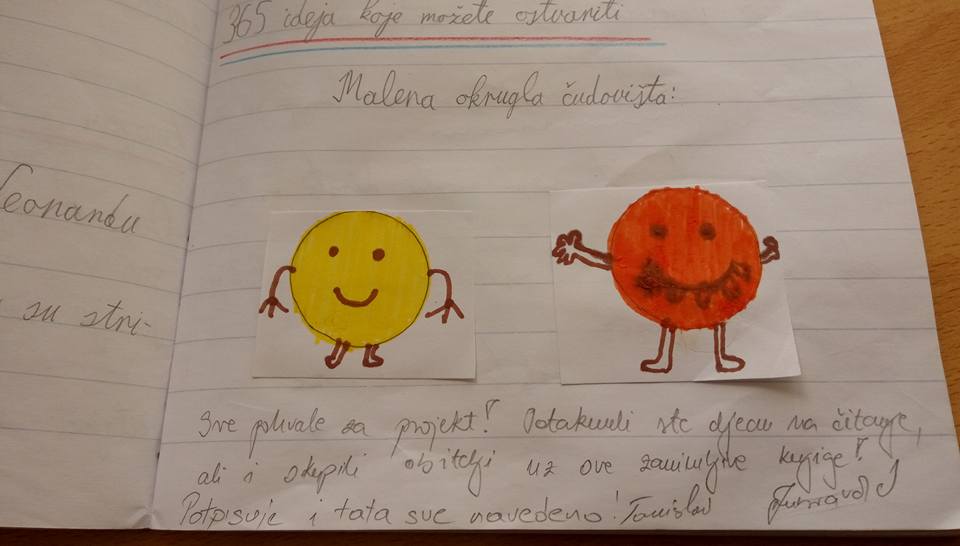 365 ideja koje možete ostvariti
Malena okrugla čudovišta:
Leonardu
su stri-
Sve pohvale za projekt! Potaknuli ste djecu na čitanje,
ali i okupili obitelji uz ove zanimljive knjige!
Potpisuje i tata sve navedeno! Tomislav